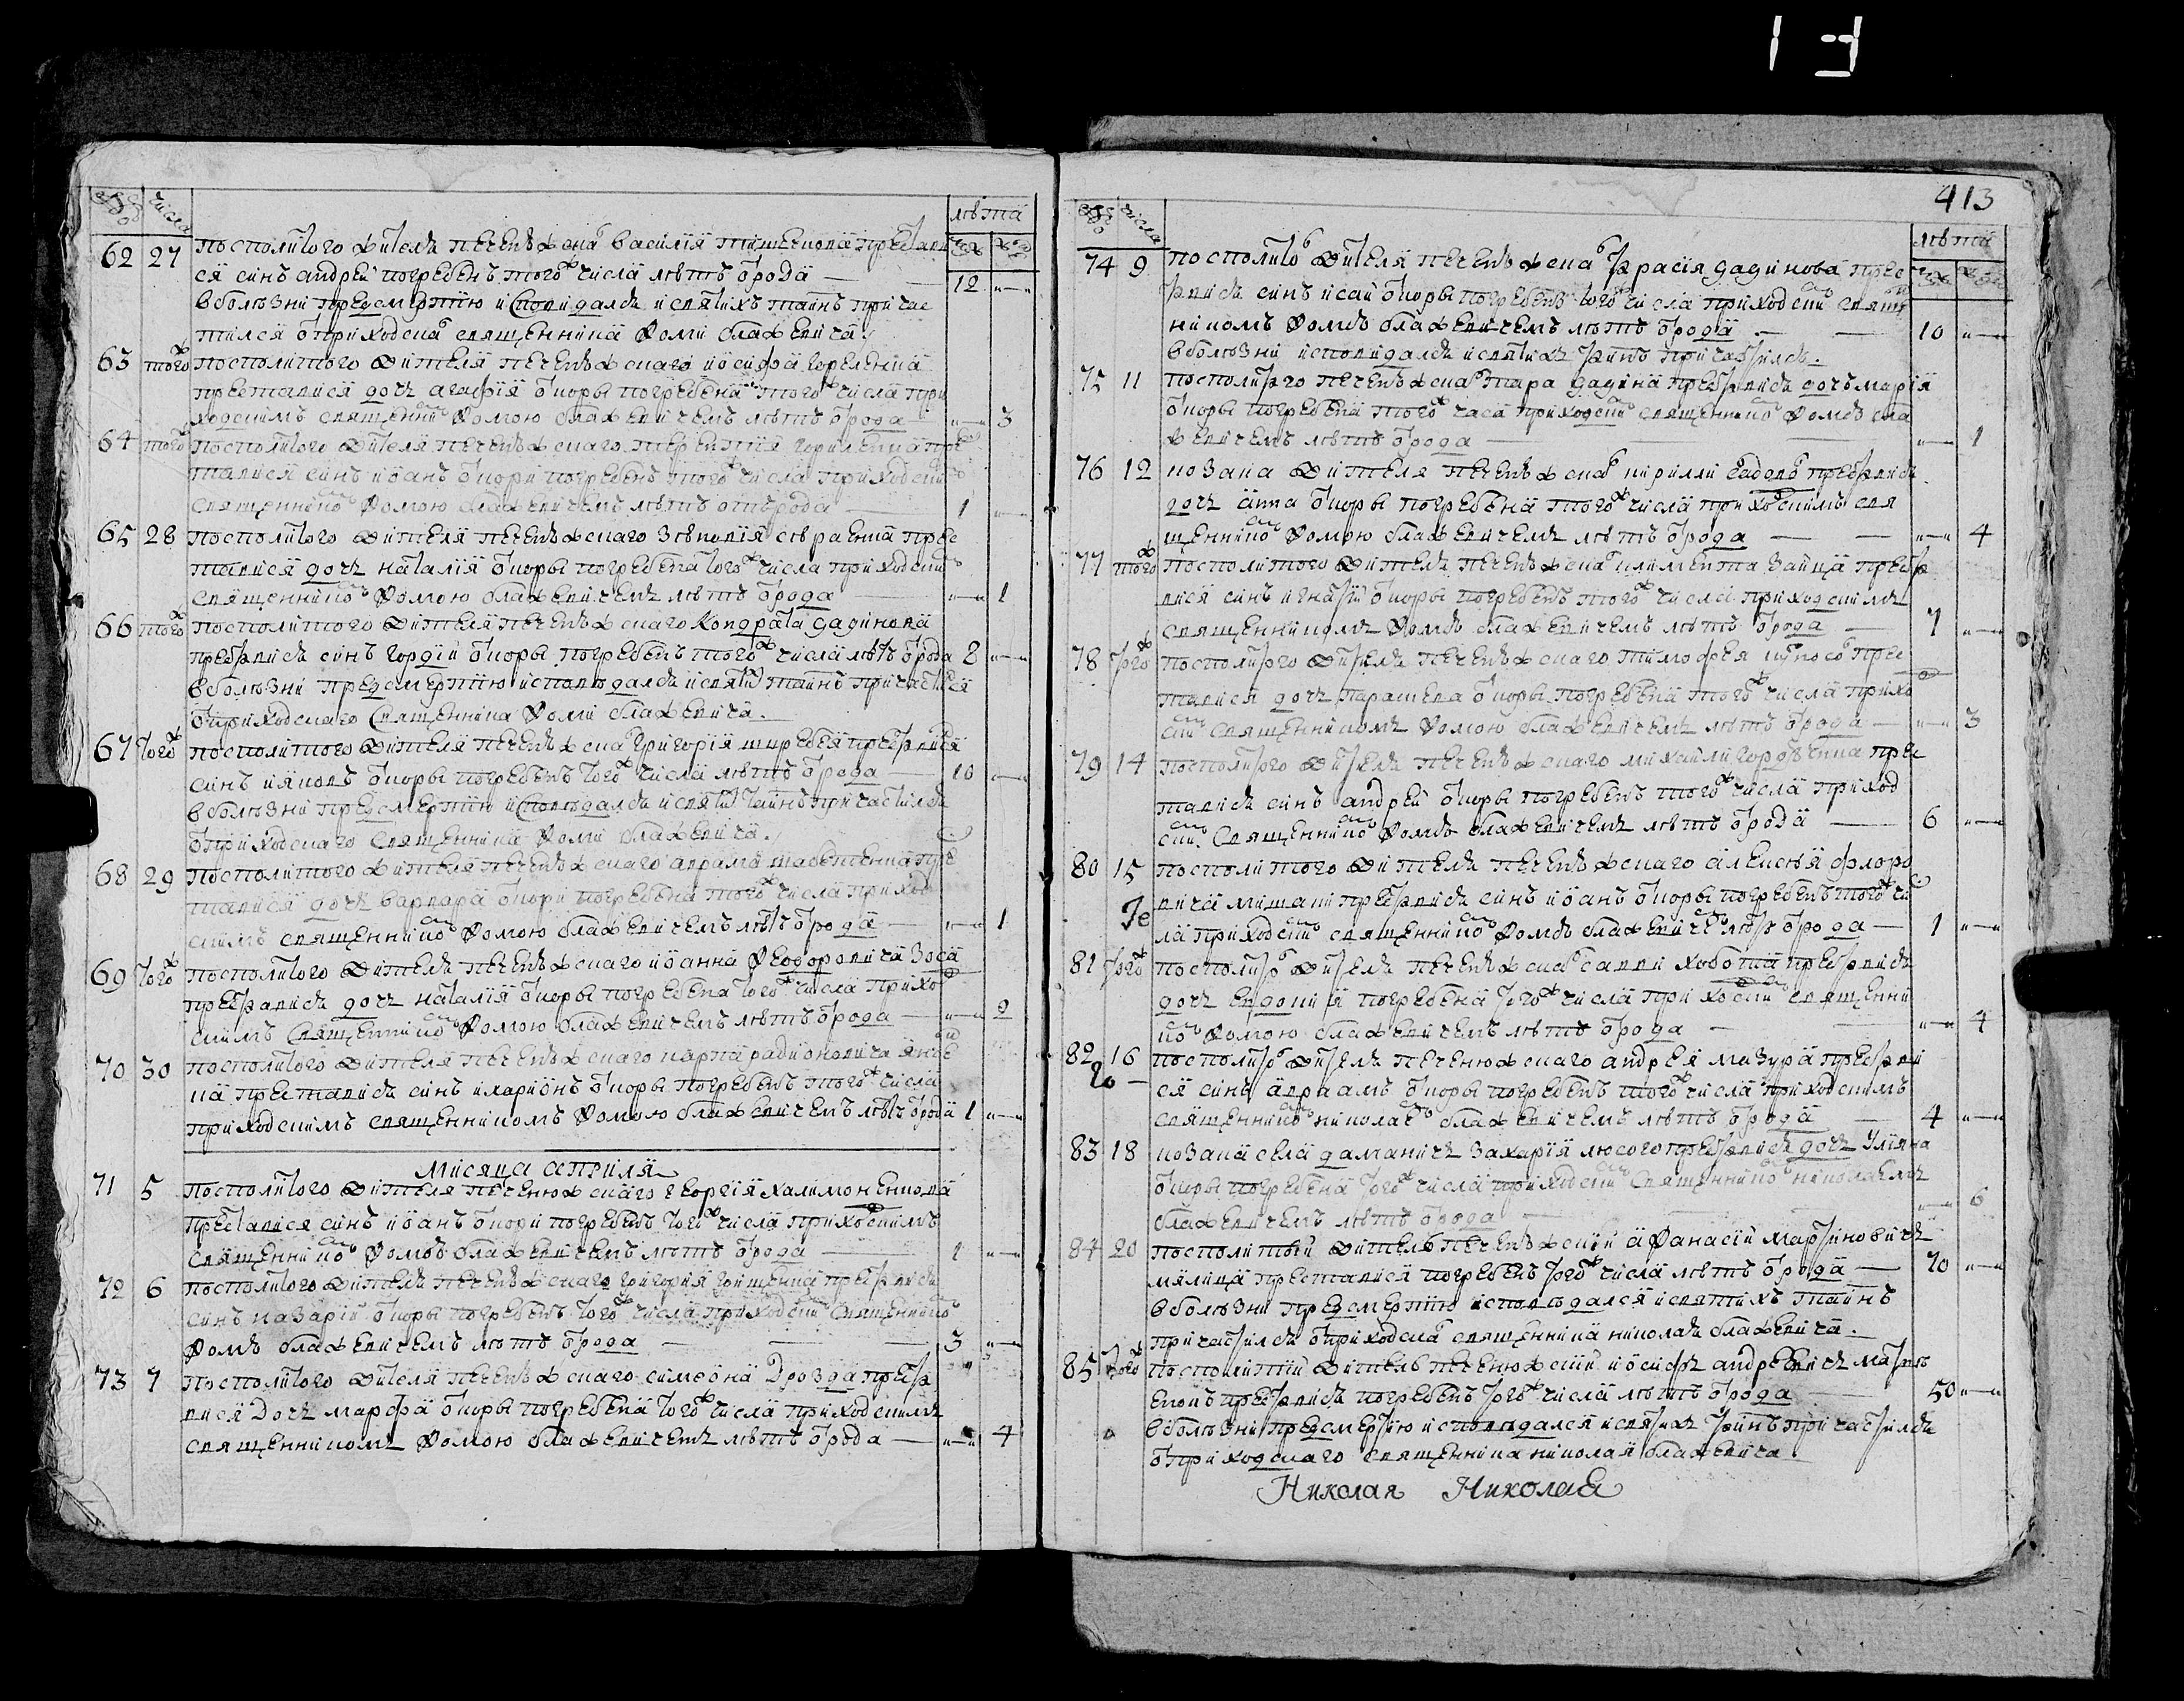 413
числа
лѣта
62 27 посполитого жителя печенѣжскаг василия престави
ся синъ андрей погребенъ тогож числа лѣтъ ѿрода — 12
в болѣзни предсмертною исповидалсѧ и святихъ таинъ причас
тился ѿ приходскаг священника Фоми блажевича
63 тогож посполитого жителя печенѣжскаго иосифа
преставися дочъ агафия ѿ кори погребена тогож числа при
ходскимъ священник Фомою блажевичемъ лѣтъ ѿрода 3
64 тогож посполитого жителя печенѣжскаго терентия
тавися синъ иоанъ ѿ кори погребенъ тогож числа приходским
священником Фомою блажевичемъ лѣтъ отърода — 1
65 28 посполитого жителя печенѣжскаго прес
тавися дочъ наталия ѿ кори погребена тогож числа приходским
священником Фомою блажевичемъ лѣтъ ѿрода — 1
66 тогож посполитого жителя печенѣжскаго кондрата дадикова
преставися синъ гордий ѿ кори погребенъ тогож числа лѣтъ ѿрода 8
в болѣзни предсмертною исповѣдалсѧ и святих таинъ причастися
ѿ приходскаго священника Фоми блажевича.
67 тогож посполитого жителя печенѣжскаг григория преставися
синъ ияковъ ѿ кори погребенъ тогож числа лѣтъ ѿрода — 10
в болѣзни предсмертною исповѣдалсѧ и святих таинъ причастилсѧ
ѿ приходскаго священника Фоми блажевича.
68 29 посполитого жителя печенѣжскаго аврама пре
тавися дочъ варвара ѿ кори погребена тогож числа приход
скимъ священником Фомою блажевичемъ лѣтъ ѿрода — 1
69 тогож посполитого жителя печенѣжскаго иоанна Феодоровича
преставися дочъ наталия ѿ кори погребена тогож числа прихо
скимъ священником Фомою блажевичемъ лѣтъ ѿрода — 2
70 30 посполитого жителя печенѣжскаго карпа радионовича
ка преставися синъ иларионъ ѿ кори погребенъ тогож числа
приходскимъ священникомъ Фомою блажевичемъ лѣтъ ѿрода 1
Мисяца априля
71 5 посполитого жителя печенюжскаго георгия халимоненкова
преставися синъ иоанъ ѿ кори погребенъ тогож числа приходскимъ
священником Фомою блажевичемъ лѣтъ ѿрода — 1
72 6 посполитого жителя печенѣжскаго григория преставися
синъ назарий ѿ кори погребенъ тогож числа приходским священником
Фомѣ блажевичемъ лѣтъ ѿрода — 3
73 7 посполитого жителя печенѣжскаго симеона Дрозда преста
вися Дочъ марфа ѿ кори погребена тогож числа приходскимъ
священникомъ Фомою блажевичемъ лѣтъ ѿрода — 4
числа
лѣта
74 9 посполитог жителя печенѣжскаг тарасия дадикова прес
тависѧ синъ исай ѿ кори погребенъ тогож числа приходским свяще
никомъ Фомѣ блажевичемъ лѣтъ ѿрода — 10
в болѣзни исповидалсѧ и святихъ таинъ причастилсѧ.
75 11 посполитого печенѣжскаг тара дадика преставися дочъ мария
ѿ кори погребена тогож часа приходским священником Фомѣ бла
жевичемъ лѣтъ ѿрода — 1
76 12 козака жителя печенѣжскаг кирилли преставися
дочъ анна ѿ кори погребена тогож числа приходскимъ свя
щенником Фомою блажевичемъ лѣтъ ѿрода — 4
77 тогож посполитого жителя печенѣжскаг климента зайца преста
вися синъ игнатий ѿ кори погребенъ тогож числа приходскимъ
священникомъ Фомѣ блажевичемъ лѣтъ ѿрода — 7
78 тогож посполитого жителя печенѣжскаго тимофея прес
тавися дочъ параскева ѿ кори погребена тогож числа прихо
ским священникомъ Фомою блажевичемъ лѣтъ ѿрода — 3
79 14 посполитого жителя печенѣжскаго михайли прес
тависѧ синъ андрей ѿ кори погребенъ тогож числа приход
ским священником Фомѣ блажевичемъ лѣтъ ѿрода — 6
80 15 посполитого жителя печенѣжскаго алексѣя флоро
вича преставися синъ иоанъ ѿ кори погребенъ тогож чис
ла приходским священником Фомѣ блажевичем лѣтъ ѿрода — 1
81 тогож посполитог жителя печенѣжскаг савви хобота преставися
дочъ евдокия погребена тогож числа приходским священни
ком Фомою блажевичемъ лѣтъ ѿрода — 4
82 16 посполитог жителя печенюжскаго андрея мазура престави
ся синъ авраамъ ѿ кори погребенъ тогож числа приходскимъ
священником николаем блажевичемъ лѣтъ ѿрода — 4
83 18 козака захария лисого преставися дочъ улияна
ѿ кори погребена тогож числа приходским священником николаемъ
блажевичемъ лѣтъ ѿрода — 6
84 20 посполитий житель печенѣжский афанасий мартиновичъ
преставися погребенъ тогож числа лѣтъ ѿрода — 70
в болѣзни предсмертною исповѣдался и святихъ таинъ
причастилсѧ ѿ приходскаг священника николая блажевича.
85 тогож посполитий житель печенюжский иосифъ андреевичъ
преставися погребенъ тогож числа лѣтъ ѿрода — 50
в болѣзни предсмертною исповѣдался и святихъ таинъ причастилсѧ
ѿ приходскаго священника николая блажевича.
Николая Николае